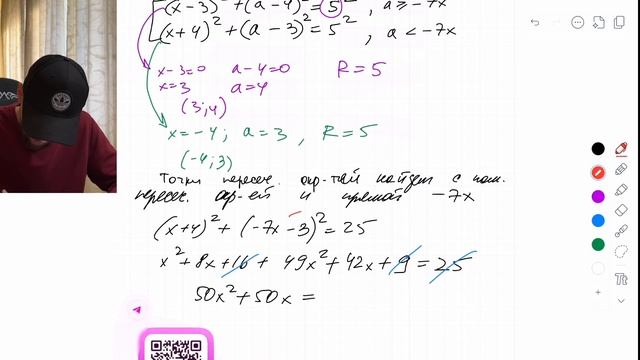 (x-3)² + (a-4)² = 5², a ≥ -7x
(x+4)² + (a-3)² = 5², a < -7x
x-3=0 a-4=0 R=5
x=3 a=4
(3;4)
x=-4; a=3, R=5
(-4;3)
Точки пересеч. окр-тей найдем с пом.
пересеч. окр-ей и прямой -7x
(x+4)² + (-7x-3)² = 25
x² + 8x + 16 + 49x² + 42x + 9 = 25
50x² + 50x =